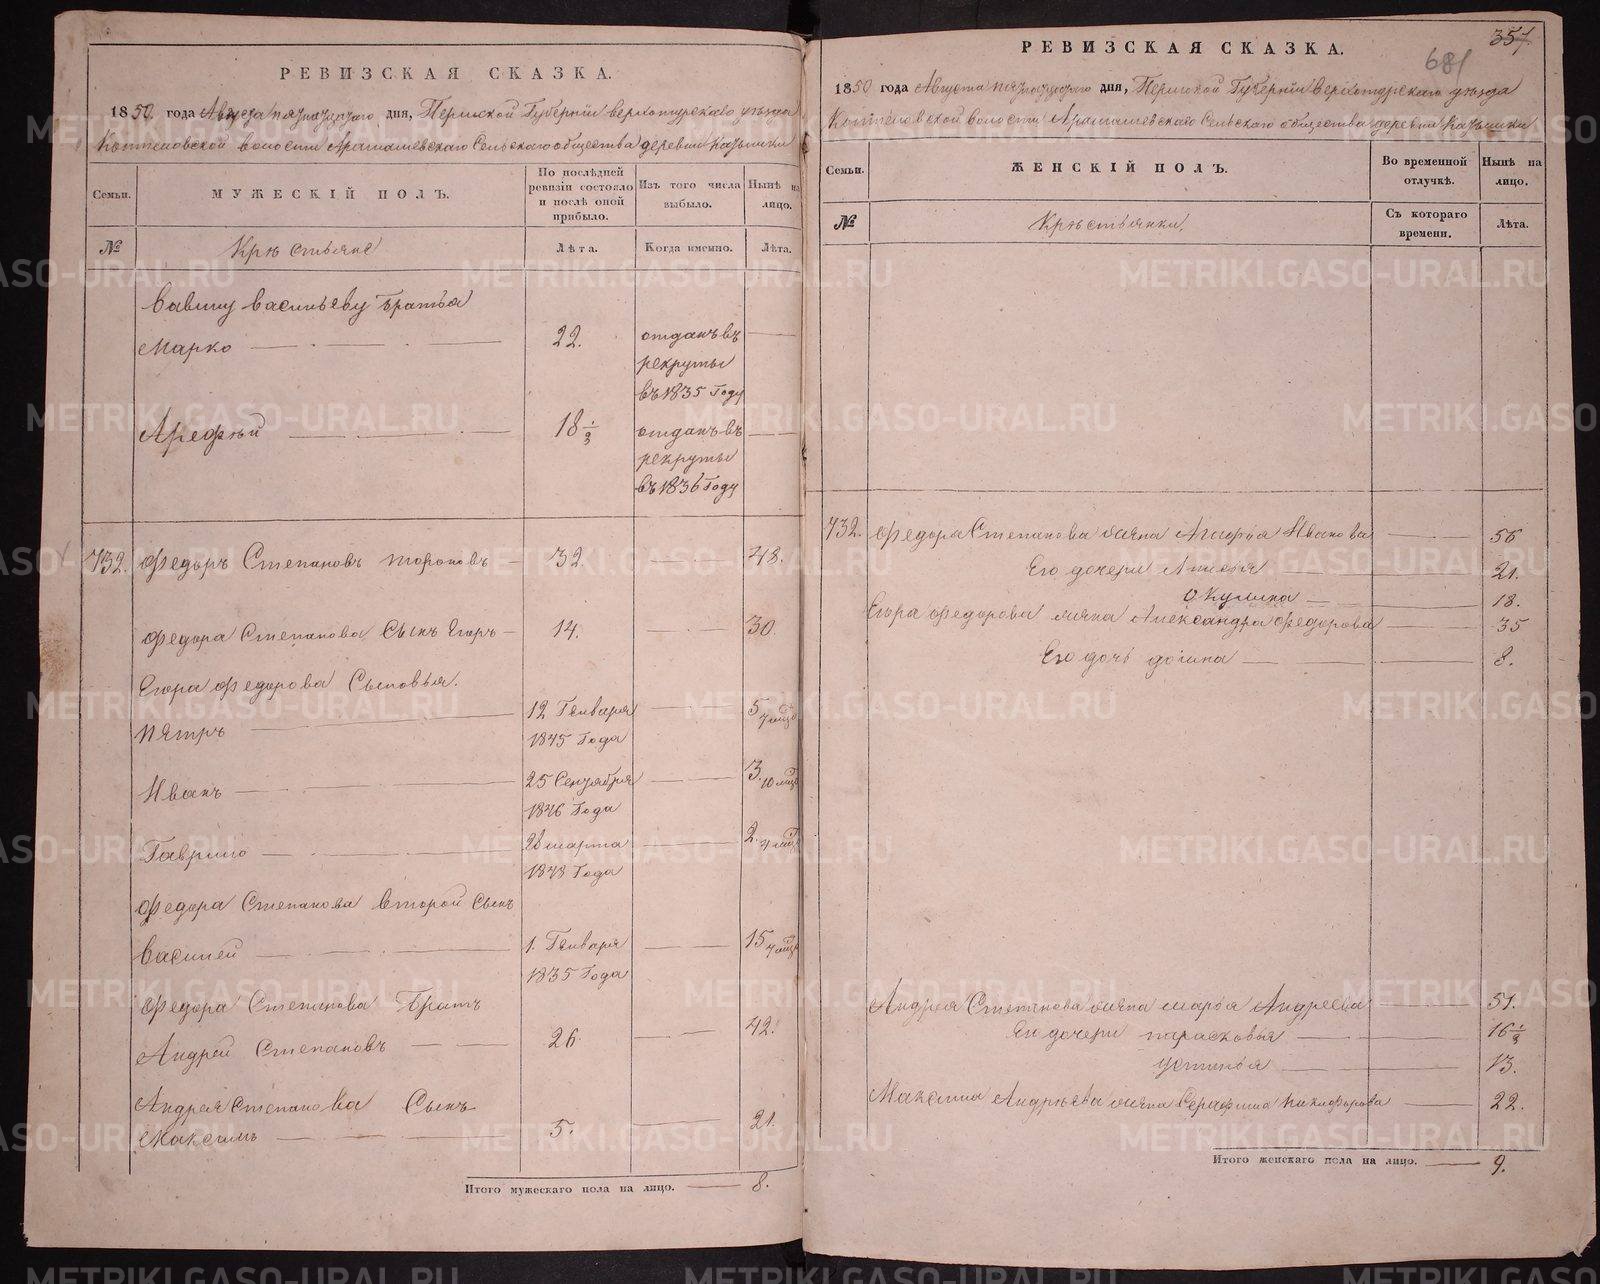 РЕВИЗСКАЯ СКАЗКА.
1850 года Августа дня, Пермской Губернии верхотурского уѣзда
Коптеловской волости Арамашевскаго Сельскаго общества деревни
Семьи. МУЖЕСКІЙ ПОЛЪ. По послѣдней ревизіи состояло и послѣ оной прибыло. Изъ того числа выбыло. Нынѣ на лицо.
№ Крѣстьяне Лѣта. Когда именно. Лѣта.
Васильеву братья
Марко 22. отданъ въ
рекруты
въ 1835 Году
Арефѣй 18 1/2 отданъ въ
рекруты
въ 1836 Году
732. Федоръ Степановъ 32. 48.
Федора Степанова Сынъ Егоръ 14. 30.
Егора Федорова Сыновья.
Пѣтръ 12 Генваря 5
1845 Года
Иванъ 25 Сентября 3. 10
1846 Года
Гаврило марта 2.
1848 Года
Федора Степанова второй Сынъ
Василей 1. Генваря 15
1835 Года
Федора Степанова Братъ
Андрей Степановъ 26. 42.
Андрея Степанова Сынъ
Максимъ 5. 21.
Итого мужескаго пола на лицо. 8.
357
681
РЕВИЗСКАЯ СКАЗКА.
1850 года Августа дня, Пермской Губерніи верхотурскаго уѣзда
Коптеловской волости Арамашевскаго Сельскаго общества деревни
Семьи. ЖЕНСКІЙ ПОЛЪ. Во временной отлучкѣ. Нынѣ на лицо.
№ Крѣстьянки. Съ котораго времени. Лѣта.
732. Федора Степанова жена Иванова 56
Его дочери Анисья 21.
Окулина 18.
Егора Федорова жена Александра Федорова 35
Его дочь 8.
Андрея Степанова жена Марья Андреева 51.
Его дочери Парасковья 16 1/2
Устинья 13.
Максима Андрѣева жена Никифорова 22.
Итого женскаго пола на лицо. 9.
METRIKI.GASO-URAL.RU